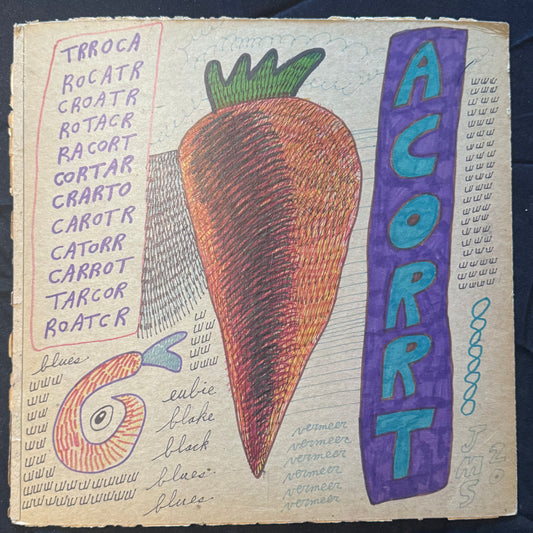 TRROCA
ROCATR
CROATR
ROTACR
RACORT
CORTAR
CRARTO
CAROTR
CATORR
CARROT
TARCOR
ROATCR
ACORRT
blues
eubie
blake
black
blues
blues
vermeer
vermeer
vermeer
vermeer
vermeer
vermeer
JMS
20